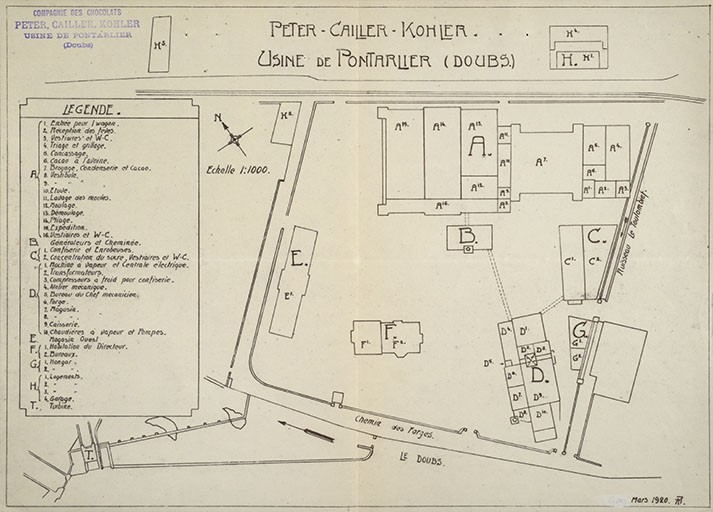 COMPAGNIE DES CHOCOLATS
PETER, CAILLER, KOHLER
USINE DE PONTARLIER
(Doubs)
PETER-CAILLER-KOHLER.
USINE DE PONTARLIER (DOUBS.)
H3.
H4.
H. H1.
LÉGENDE.
A. 1. Entrée pour 1 wagon.
2. Réception des fèves.
3. Vestiaires et W-C.
4. Triage et grillage.
5. Concassage.
6. Cacao à l'avoine.
7. Broyage, Condenserie et Cacao.
8. Vestibule.
9. " "
10. Etuve.
11. Lavage des moules.
12. Moulage.
13. Démoulage.
14. Pliage.
15. Expédition.
16. Vestiaires et W-C.
B. Générateurs et Cheminée.
C. 1. Confiserie et Enrobeuses.
2. Concentration du sucre, Vestiaires et W-C.
D. 1. Machine à vapeur et Centrale électrique.
2. Transformateurs.
3. Compresseurs à froid pour confiserie.
4. Atelier mécanique.
5. Bureau du Chef mécanicien.
6. Forge.
7. Magasin.
8. " "
9. Caisserie.
10. Chaudières à vapeur et Pompes.
E. Magasin Ouest
F. 1. Habitation du Directeur.
2. Bureaux.
G. 1. Hangar.
2. "
H. 1. Logements.
2. "
3. "
4. Garage.
T. Turbine.
N
Echelle 1:1000.
H2.
A15.
A14.
A13.
A.
A12.
A16.
A11.
A10.
A9.
A8.
A7.
A5.
A6.
A4.
A1.
A2.
A3.
B.
C.
C1.
C2.
Ruisseau le Toulombief.
E.
E1.
F.
F1.
F2.
G.
G1.
G2.
D4.
D1.
D2.
D3.
D5.
D6.
D.
D7.
D9.
D8.
D10.
Chemin des Forges.
LE DOUBS.
T.
Mars 1920.